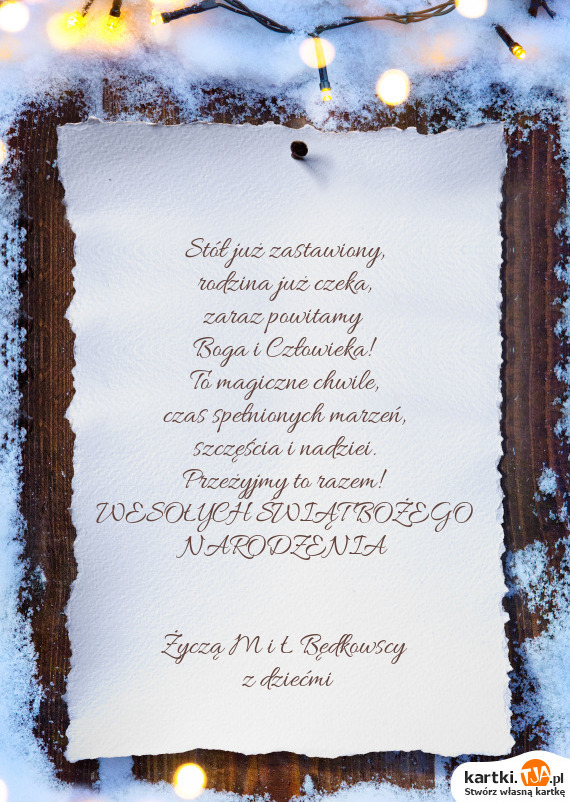 Stół już zastawiony,
rodzina już czeka,
zaraz powitamy
Boga i Człowieka!
To magiczne chwile,
czas spełnionych marzeń,
szczęścia i nadziei.
Przeżyjmy to razem!
WESOŁYCH ŚWIĄT BOŻEGO
NARODZENIA
Życzą M i Ł Będkowscy
z dziećmi
kartki.TJA.pl
Stwórz własną kartkę